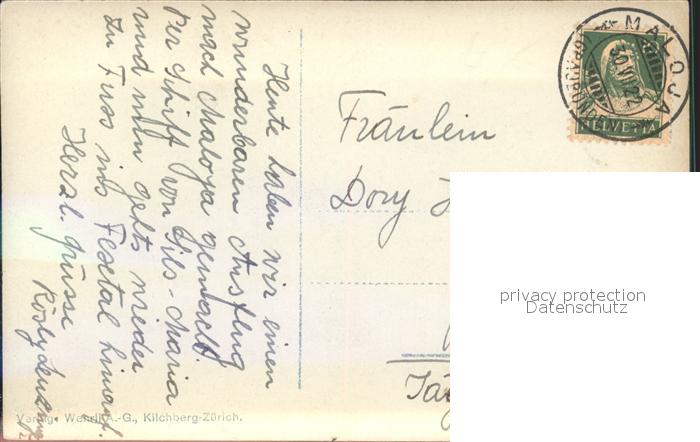 Heute haben wir einen
wunderbaren Ausflug
nach Maloja gemacht.
Per Schiff von Sils-Maria
und nun gehts wieder
zu Fuss ins Fextal hinauf.
Herzl. Grüsse
Fräulein
Dory
MALOJA
30.VII.22
HELVETIA
privacy protection
Datenschutz
Verlag: Wehrli A.-G., Kilchberg-Zürich.